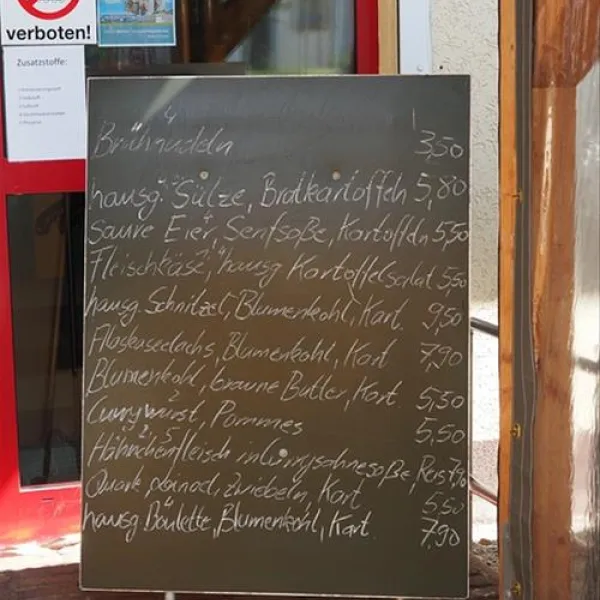 verboten!
Zusatzstoffe:
Brühnudeln 3,50
hausg. Sülze, Bratkartoffeln 5,80
saure Eier, Senfsoße, Kartoffeln 5,50
Fleischkäse, hausg Kartoffelsalat 5,50
hausg. Schnitzel, Blumenkohl, Kart. 9,50
Alaskaseelachs, Blumenkohl, Kart 7,90
Blumenkohl, braune Butter, Kart. 5,50
Currywurst, Pommes 5,50
Hähnchenfleisch in Currysahnesoße, Reis 7,90
Quark, Zwiebeln, Kart 5,50
hausg Boulette, Blumenkohl, Kart. 7,90